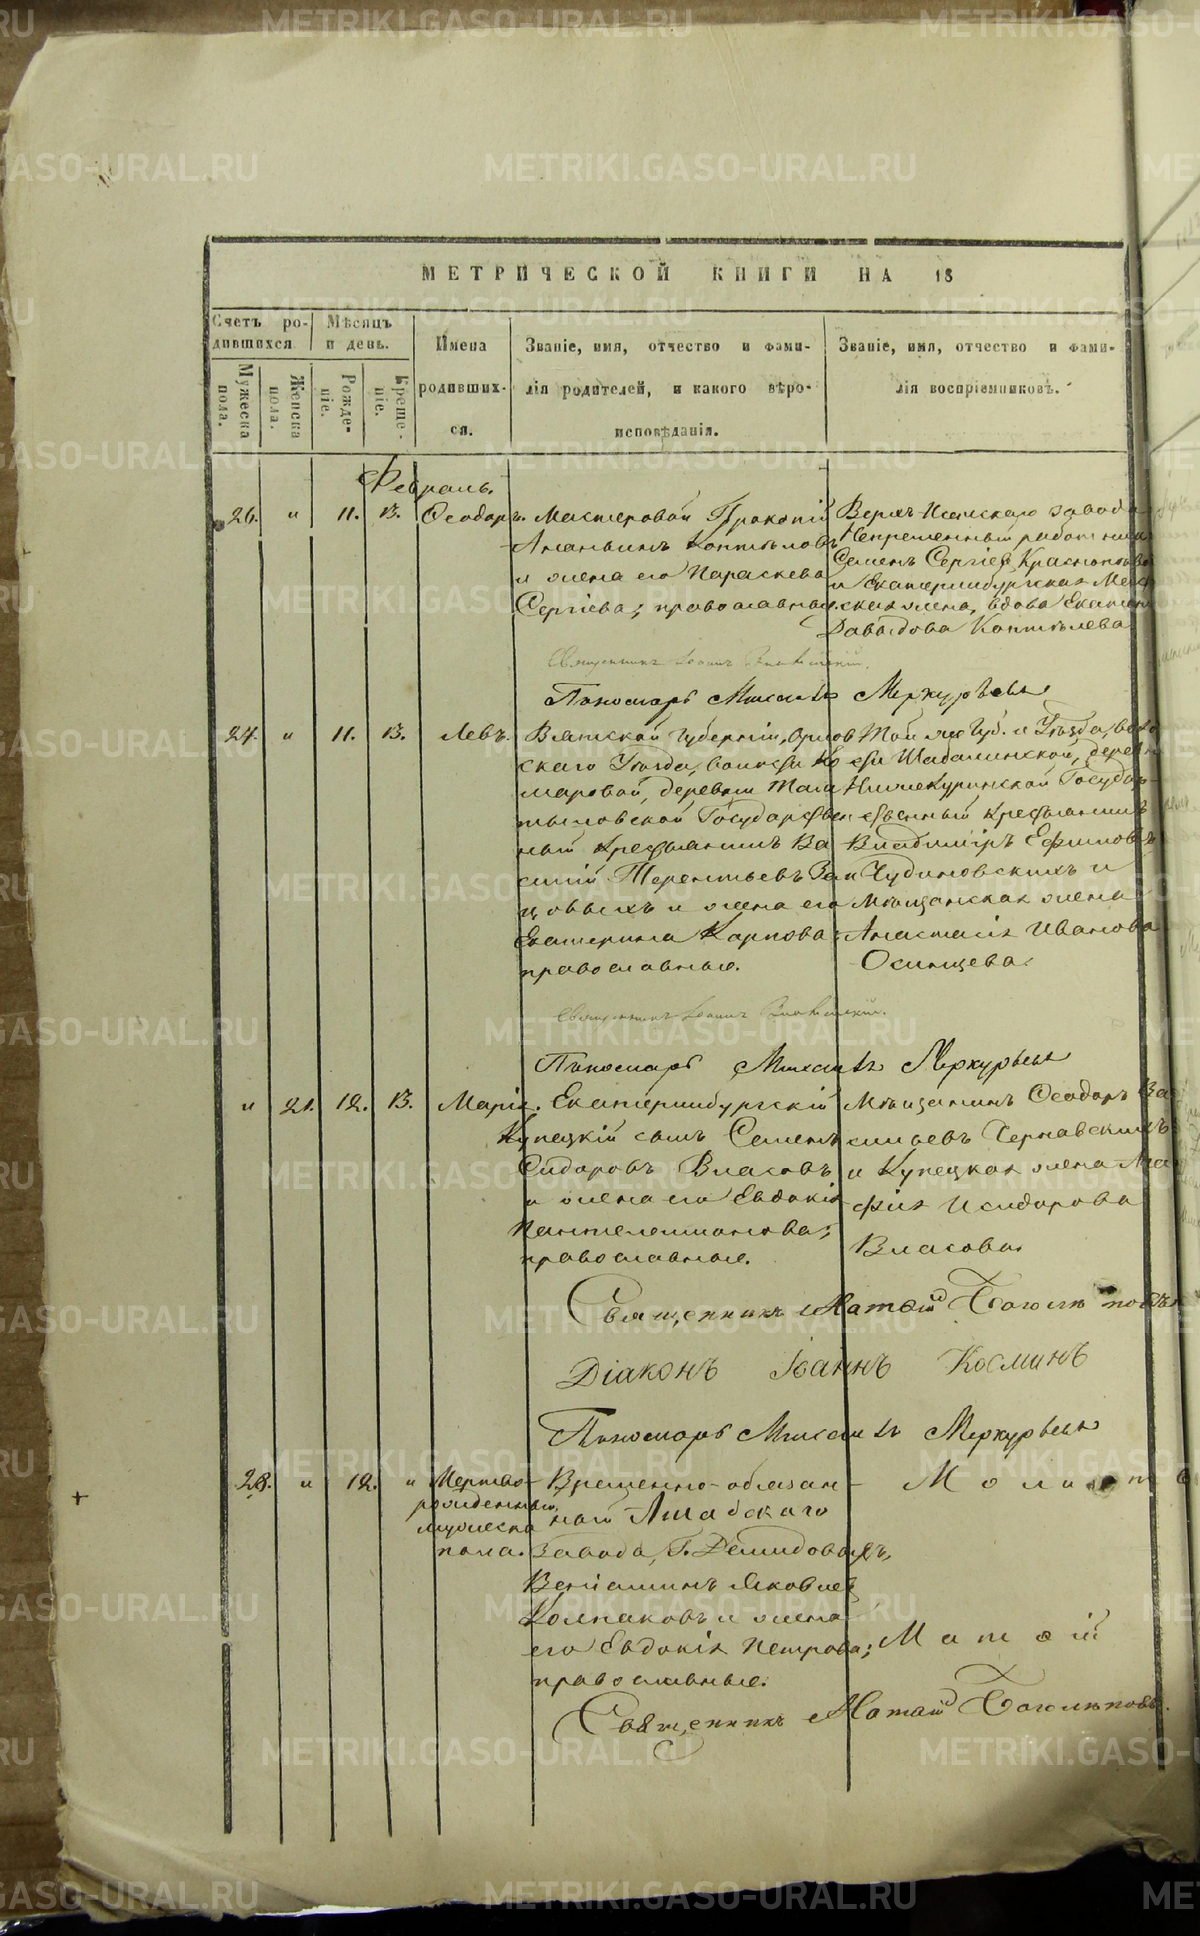 МЕТРИЧЕСКОЙ КНИГИ НА 18
Счетъ ро-
дившихся
Мѣсяцъ
и день.
Имена
родивших-
ся.
Званіе, имя, отчество и фами-
лія родителей, и какого вѣро-
исповѣданія.
Званіе, имя, отчество и фами-
лія воспріемниковъ.
Мужеска
пола.
Женска
пола.
Рожде-
ніе.
Креще-
ніе.
Февраль.
26. " 11. 13. Ѳеодоръ.
Мастеровой Прокопій
Ананьинъ Коптѣловъ
и жена его Параскева
Сергіева; православные.
Верхъ-Исетскаго завода
Непременный работникъ
Семенъ Сергіевъ
и Екатеринбургская
жена, вдова
Давыдова Коптѣлева
Священникъ Іоаннъ
Пономарь Михаилъ Меркурьевъ
27. " 11. 13. Левъ.
Вятской Губерніи, Орлов
скаго Уѣзда, волости Ко
маровой, деревни
Государствен
ный крестьянинъ Ва
силій Терентьевъ
и жена его
Екатерина Карпова;
православные.
Той же Губ. и Уѣзда, воло
сти Шабалинской, деревни
Нижекуринской Государ-
ственный крестьянинъ
Владиміръ Ефимовъ
Чудиновскихъ и
Мѣщанская жена
Анастасія Иванова
Осинцева.
Священникъ Іоаннъ
Пономарь Михаилъ Меркурьевъ
" 21. 12. 13. Марія.
Екатеринбургскій
Купецкій сынъ Семенъ
Сидоровъ Власовъ
и жена его Евдокія
Пантелеимонова;
православные.
Мѣщанинъ Ѳеодоръ Ва
сильевъ Чернавскихъ
и Купецкая жена Ма
рфія Исидорова
Власова.
Священникъ Матѳій Боголѣповъ
Діаконъ Іоаннъ Косминъ
Пономарь Михаилъ Меркурьевъ
28. " 12. "
Мертво-
рожденный
мужеска
пола.
Временно-обязан-
ный
завода, Г. Демидовыхъ,
Веніаминъ Яковлевъ
Колпаковъ и жена
его Евдокія Петрова;
православные.
Матѳій
Священникъ Матѳій Боголѣповъ.
METRIKI.GASO-URAL.RU